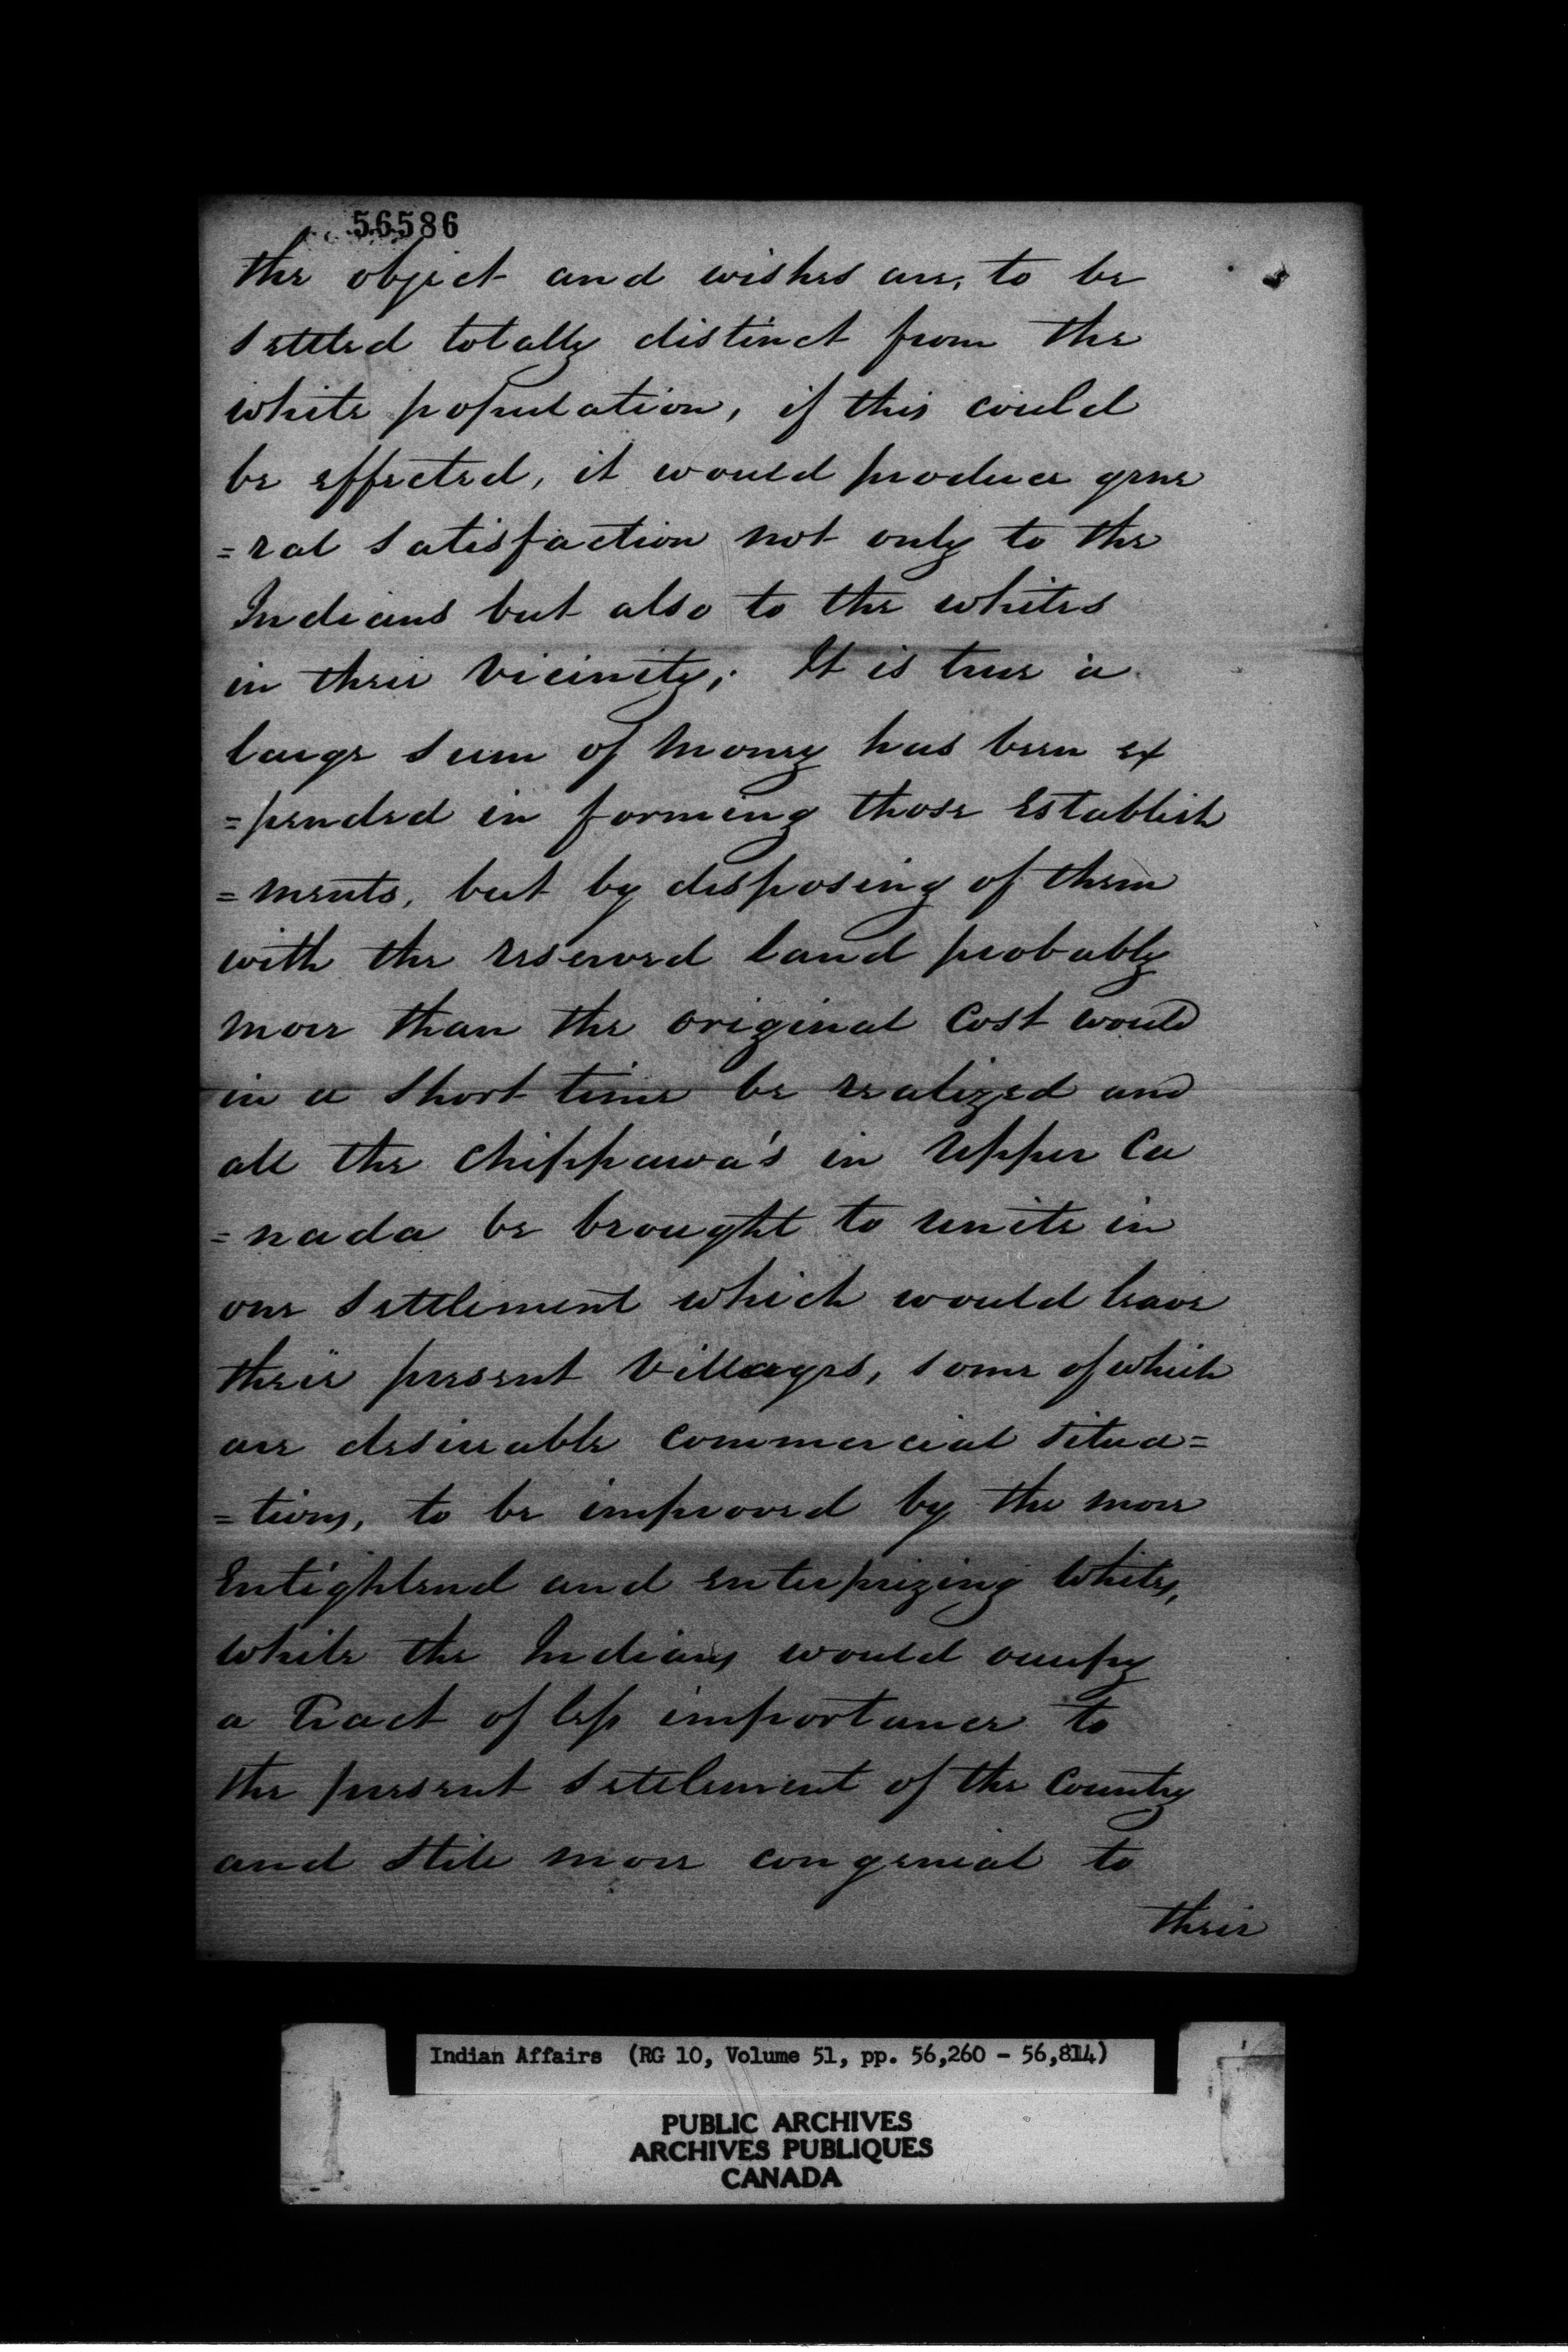 56586
the object and wishes are, to be
settled totally distinct from the
white population, if this could
be effected, it would produce gene
=ral satisfaction not only to the
Indians but also to the whites
in their Vicinity; It is true a
large sum of money has been ex
=pended in forming those Establish
=ments, but by disposing of them
with the reserved land probably
more than the original Cost would
in a short time be realized and
all the Chippawa's in Upper Ca
=nada be brought to unite in
one settlement which would leave
their present Villages, some of which
are desireable commercial situa=
=tions, to be improved by the more
Enlightend and enterprizing Whites,
while the Indians would occupy
a Tract of less importance to
the present settlement of the Country
and still more congenial to
their
Indian Affairs (RG 10, Volume 51, pp. 56,260 - 56,814)
PUBLIC ARCHIVES
ARCHIVES PUBLIQUES
CANADA